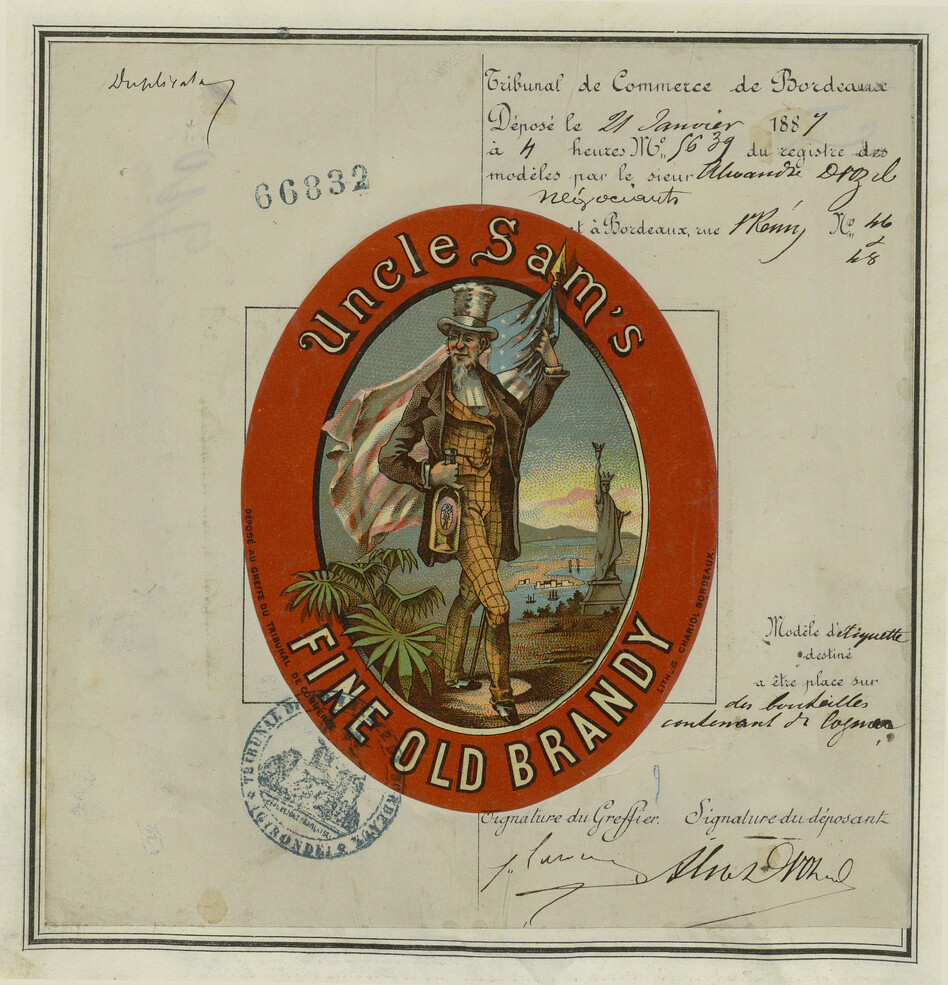 Duplicata
66832
Tribunal de Commerce de Bordeaux
Déposé le 21 Janvier 1887
à 4 heures No. 5639 du registre des
modèles par le sieur
négociants
t à Bordeaux, rue St Rémy No. 46
48
Uncle Sam's
FINE OLD BRANDY
DÉPOSÉ AU GREFFE DU TRIBUNAL DE COMMERCE
LITH. G. CHARIOL BORDEAUX
Modèle d'étiquette
destiné
a être place sur
des bouteilles
contenant du Cognac
TRIBUNAL DE
GIRONDE
Signature du Greffier. Signature du déposant